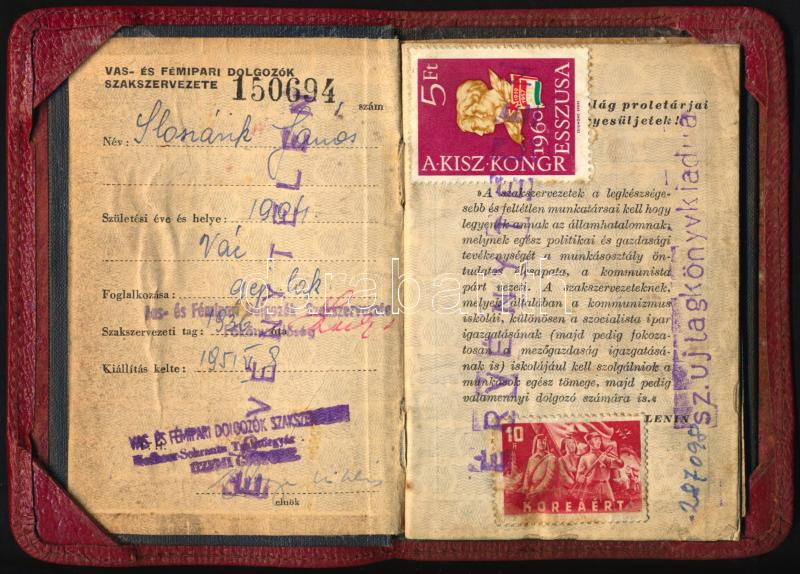 VAS- ÉS FÉMIPARI DOLGOZÓK
SZAKSZERVEZETE 150694 szám
Név:
János
Születési éve és helye: 1904.
Vác
Foglalkozása: gép lak
Vas- és Fémipari Dolgozók Szakszervezete
Szakszervezeti tag: óta
Kiállítás kelte: 1951 V 8
VAS- ÉS FÉMIPARI DOLGOZÓK
elnök
ÉRVÉNYTELEN
5 Ft
1960
A·KISZ·KONGRESSZUSA
proletárjai
»A szakszervezetek a legkészsége-
sebb és feltétlen munkatársai kell hogy
legyenek annak az államhatalomnak,
melynek egész politikai és gazdasági
tevékenységét a munkásosztály ön-
tudatos élcsapata, a kommunista
párt vezeti. A szakszervezeteknek,
melyek általában a kommunizmus
iskolái, különösen a szocialista ipar
igazgatásának (majd pedig fokoza-
tosan a mezőgazdaság igazgatásá-
nak is) iskolájául kell szolgálniok a
munkások egész tömege, majd pedig
valamennyi dolgozó számára is.«
LENIN
ÉRVÉNYTELEN
sz. új tagkönyv kiadva
287098
10
KOREÁÉRT
darabanth